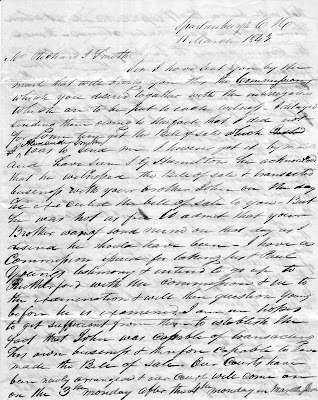 Spartanburgh C H
11 March 1843
Mr Richard J Smith
Sir I have sent you by the
mail that will bring you this the Commissions
which you desired together with the interrogatories
which are to be put to each witness I delayed
sending them owing to the fact that I did not
for some time get the Bill of sale which
to send me I however got it by mail
and have seen J G Hamilton he acknowledged
that he witnessed the Bill of sale & transacted
business with your brother John on the day
he executed the bill of sale to you - But
he was not as free to admit that your
Brother was of sound mind on that day as I
desired he should have been - I have a
Commission issued for taking
Youngs testimony & intend to go up to
Rutherford with the commission & see to
the examination & will then question young
before he is examined I am in hopes
to get sufficient from them to establish the
fact that John was capable of transacting
his own business & therefore capable to have
made the Bill of sale Our Courts have
been newly arranged & our case will come on
on the 3rd monday after the 4th monday in March